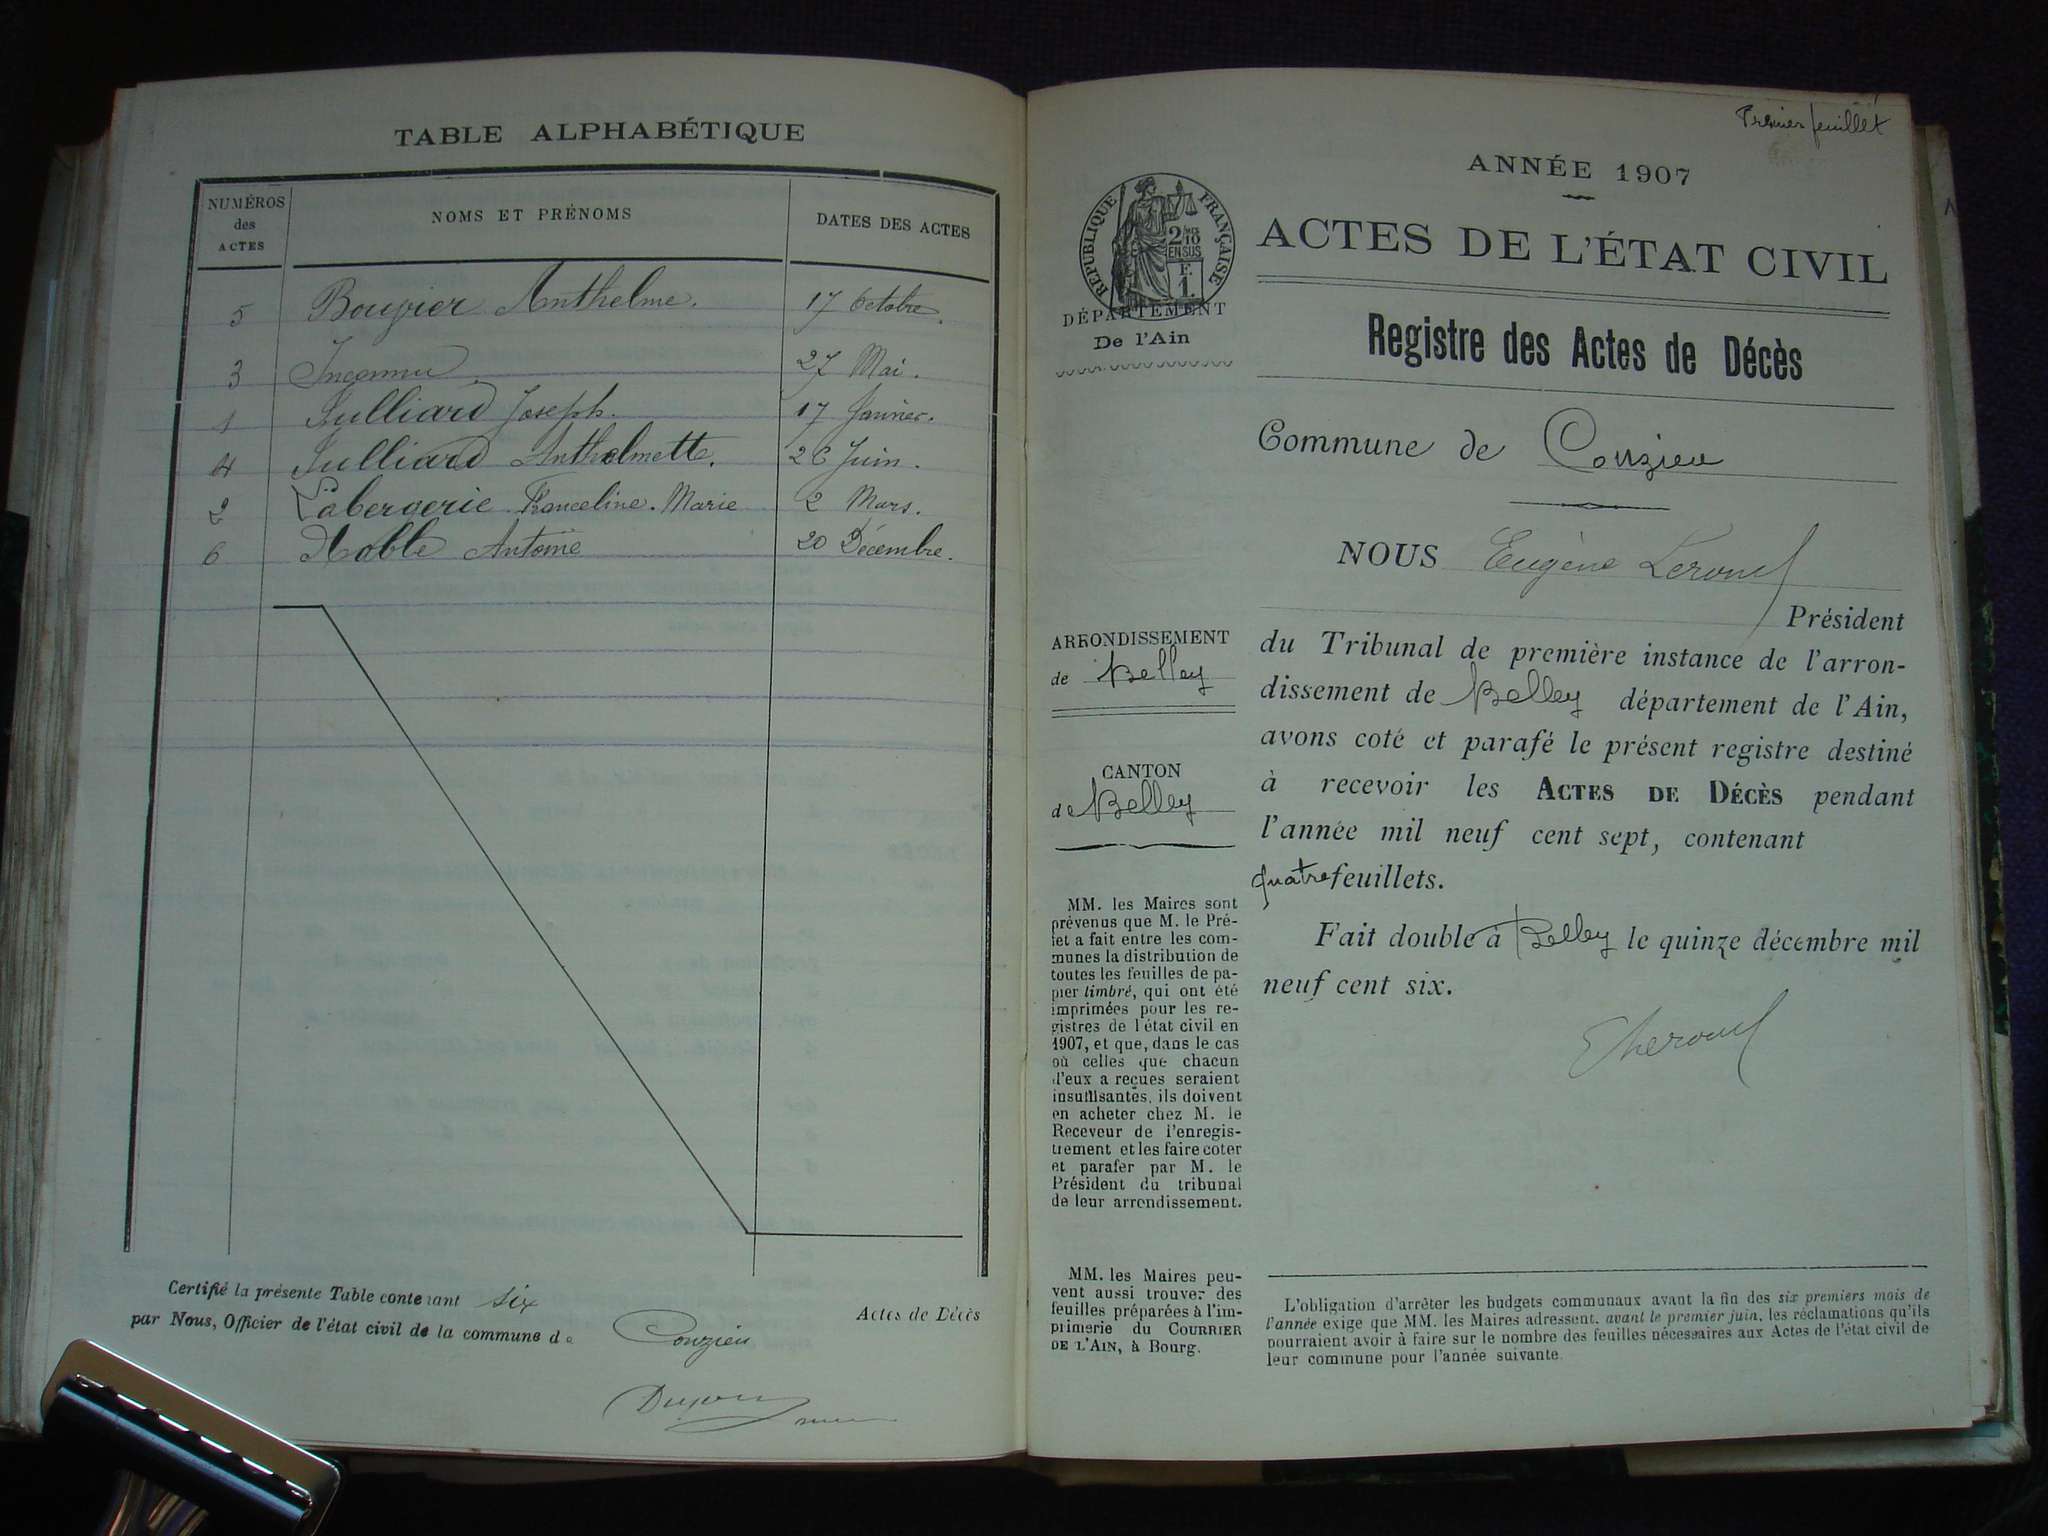 TABLE ALPHABÉTIQUE
NUMÉROS des ACTES
NOMS ET PRÉNOMS
DATES DES ACTES
5 Bouvier Anthelme. 17 Octobre.
3 Inconnu 27 Mai.
1 Julliard Joseph. 17 Janvier.
4 Julliard Anthelmette. 26 Juin.
2 Labergerie Franceline. Marie 2 Mars.
6 Noble Antoine 20 Décembre.
Certifié la présente Table contenant six Actes de Décès
par Nous, Officier de l'état civil de la commune de Conzieu
Premier feuillet
ANNÉE 1907
ACTES DE L'ÉTAT CIVIL
RÉPUBLIQUE FRANÇAISE
2/10 EN SUS
F.
1.
DÉPARTEMENT
De l'Ain
Registre des Actes de Décès
Commune de Conzieu
NOUS Eugène
Président
du Tribunal de première instance de l'arron-
dissement de Belley département de l'Ain,
avons coté et parafé le présent registre destiné
à recevoir les ACTES DE DÉCÈS pendant
l'année mil neuf cent sept, contenant
quatre feuillets.
Fait double à Belley le quinze décembre mil
neuf cent six.
ARRONDISSEMENT
de Belley
CANTON
de Belley
MM. les Maires sont
prévenus que M. le Pré-
fet a fait entre les com-
munes la distribution de
toutes les feuilles de pa-
pier timbré, qui ont été
imprimées pour les re-
gistres de l'état civil en
1907, et que, dans le cas
où celles que chacun
d'eux a reçues seraient
insuffisantes, ils doivent
en acheter chez M. le
Receveur de l'enregis-
trement et les faire coter
et parafer par M. le
Président du tribunal
de leur arrondissement.
MM. les Maires peu-
vent aussi trouver des
feuilles préparées à l'im-
primerie du COURRIER
DE L'AIN, à Bourg.
L'obligation d'arrêter les budgets communaux avant la fin des six premiers mois de
l'année exige que MM. les Maires adressent, avant le premier juin, les réclamations qu'ils
pourraient avoir à faire sur le nombre des feuilles nécessaires aux Actes de l'état civil de
leur commune pour l'année suivante.